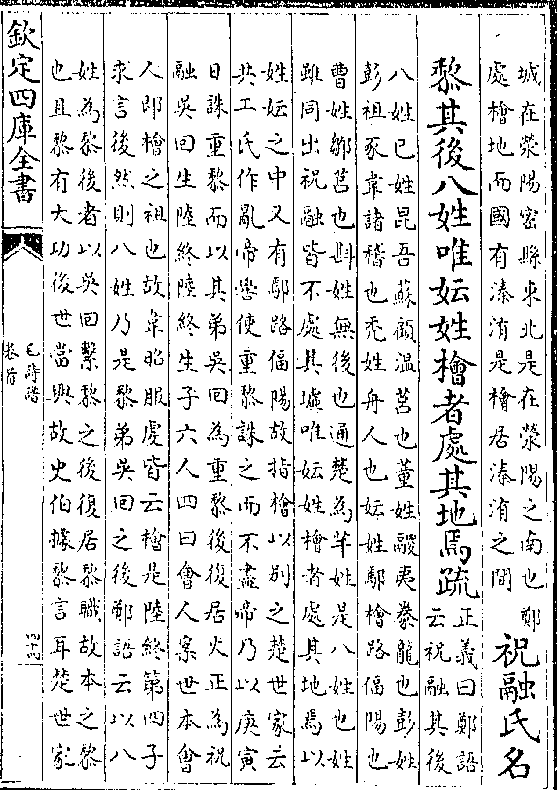 城在滎陽宻縣東北是在滎陽之南也鄭
處檜地而國有溱洧是檜居溱洧之間
祝融氏名
黎其後八姓唯妘姓檜者處其地焉疏
正義曰鄭語
云祝融其後
八姓已姓昆吾蘇顧温莒也董姓鬷夷豢龍也彭姓
彭祖豕韋諸稽也秃姓舟人也妘姓鄢檜路偪陽也
曹姓鄒莒也斟姓無後也通楚為羋姓是八姓也姓
雖同出祝融皆不處其墟唯妘姓檜者處其地焉以
姓妘之中又有鄢路偪陽故指檜以别之楚世家云
共工氏作亂帝嚳使重黎誅之而不盡帝乃以庚寅
日誅重黎而以其弟吳回為重黎後復居火正為祝
融吳回生陸終陸終生子六人四曰會人案世本會
人即檜之祖也故韋昭服虔皆云檜是陸終第四子
求言後然則八姓乃是黎弟吳回之後鄭語云以八
姓為黎後者以吳回繫黎之後復居黎職故本之黎
也且黎有大功後世當興故史伯據黎言耳楚世家
欽定四庫全書
毛詩譜
卷首